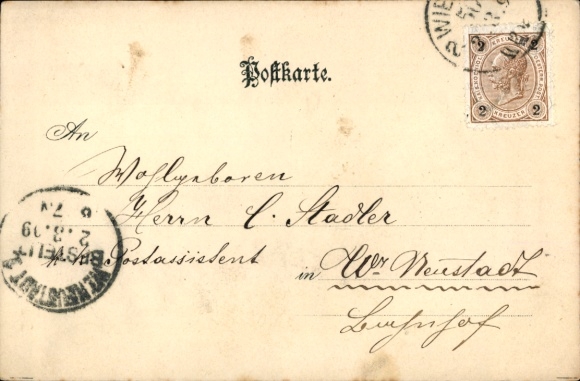 WIE
2 2
KREUZER
2 2
Postkarte.
An
Wohlgeboren
Herrn C. Stadler
Postassistent
in Wr Neustadt
Bahnhof
WR. NEUSTADT
BESTELLT
2.3.99